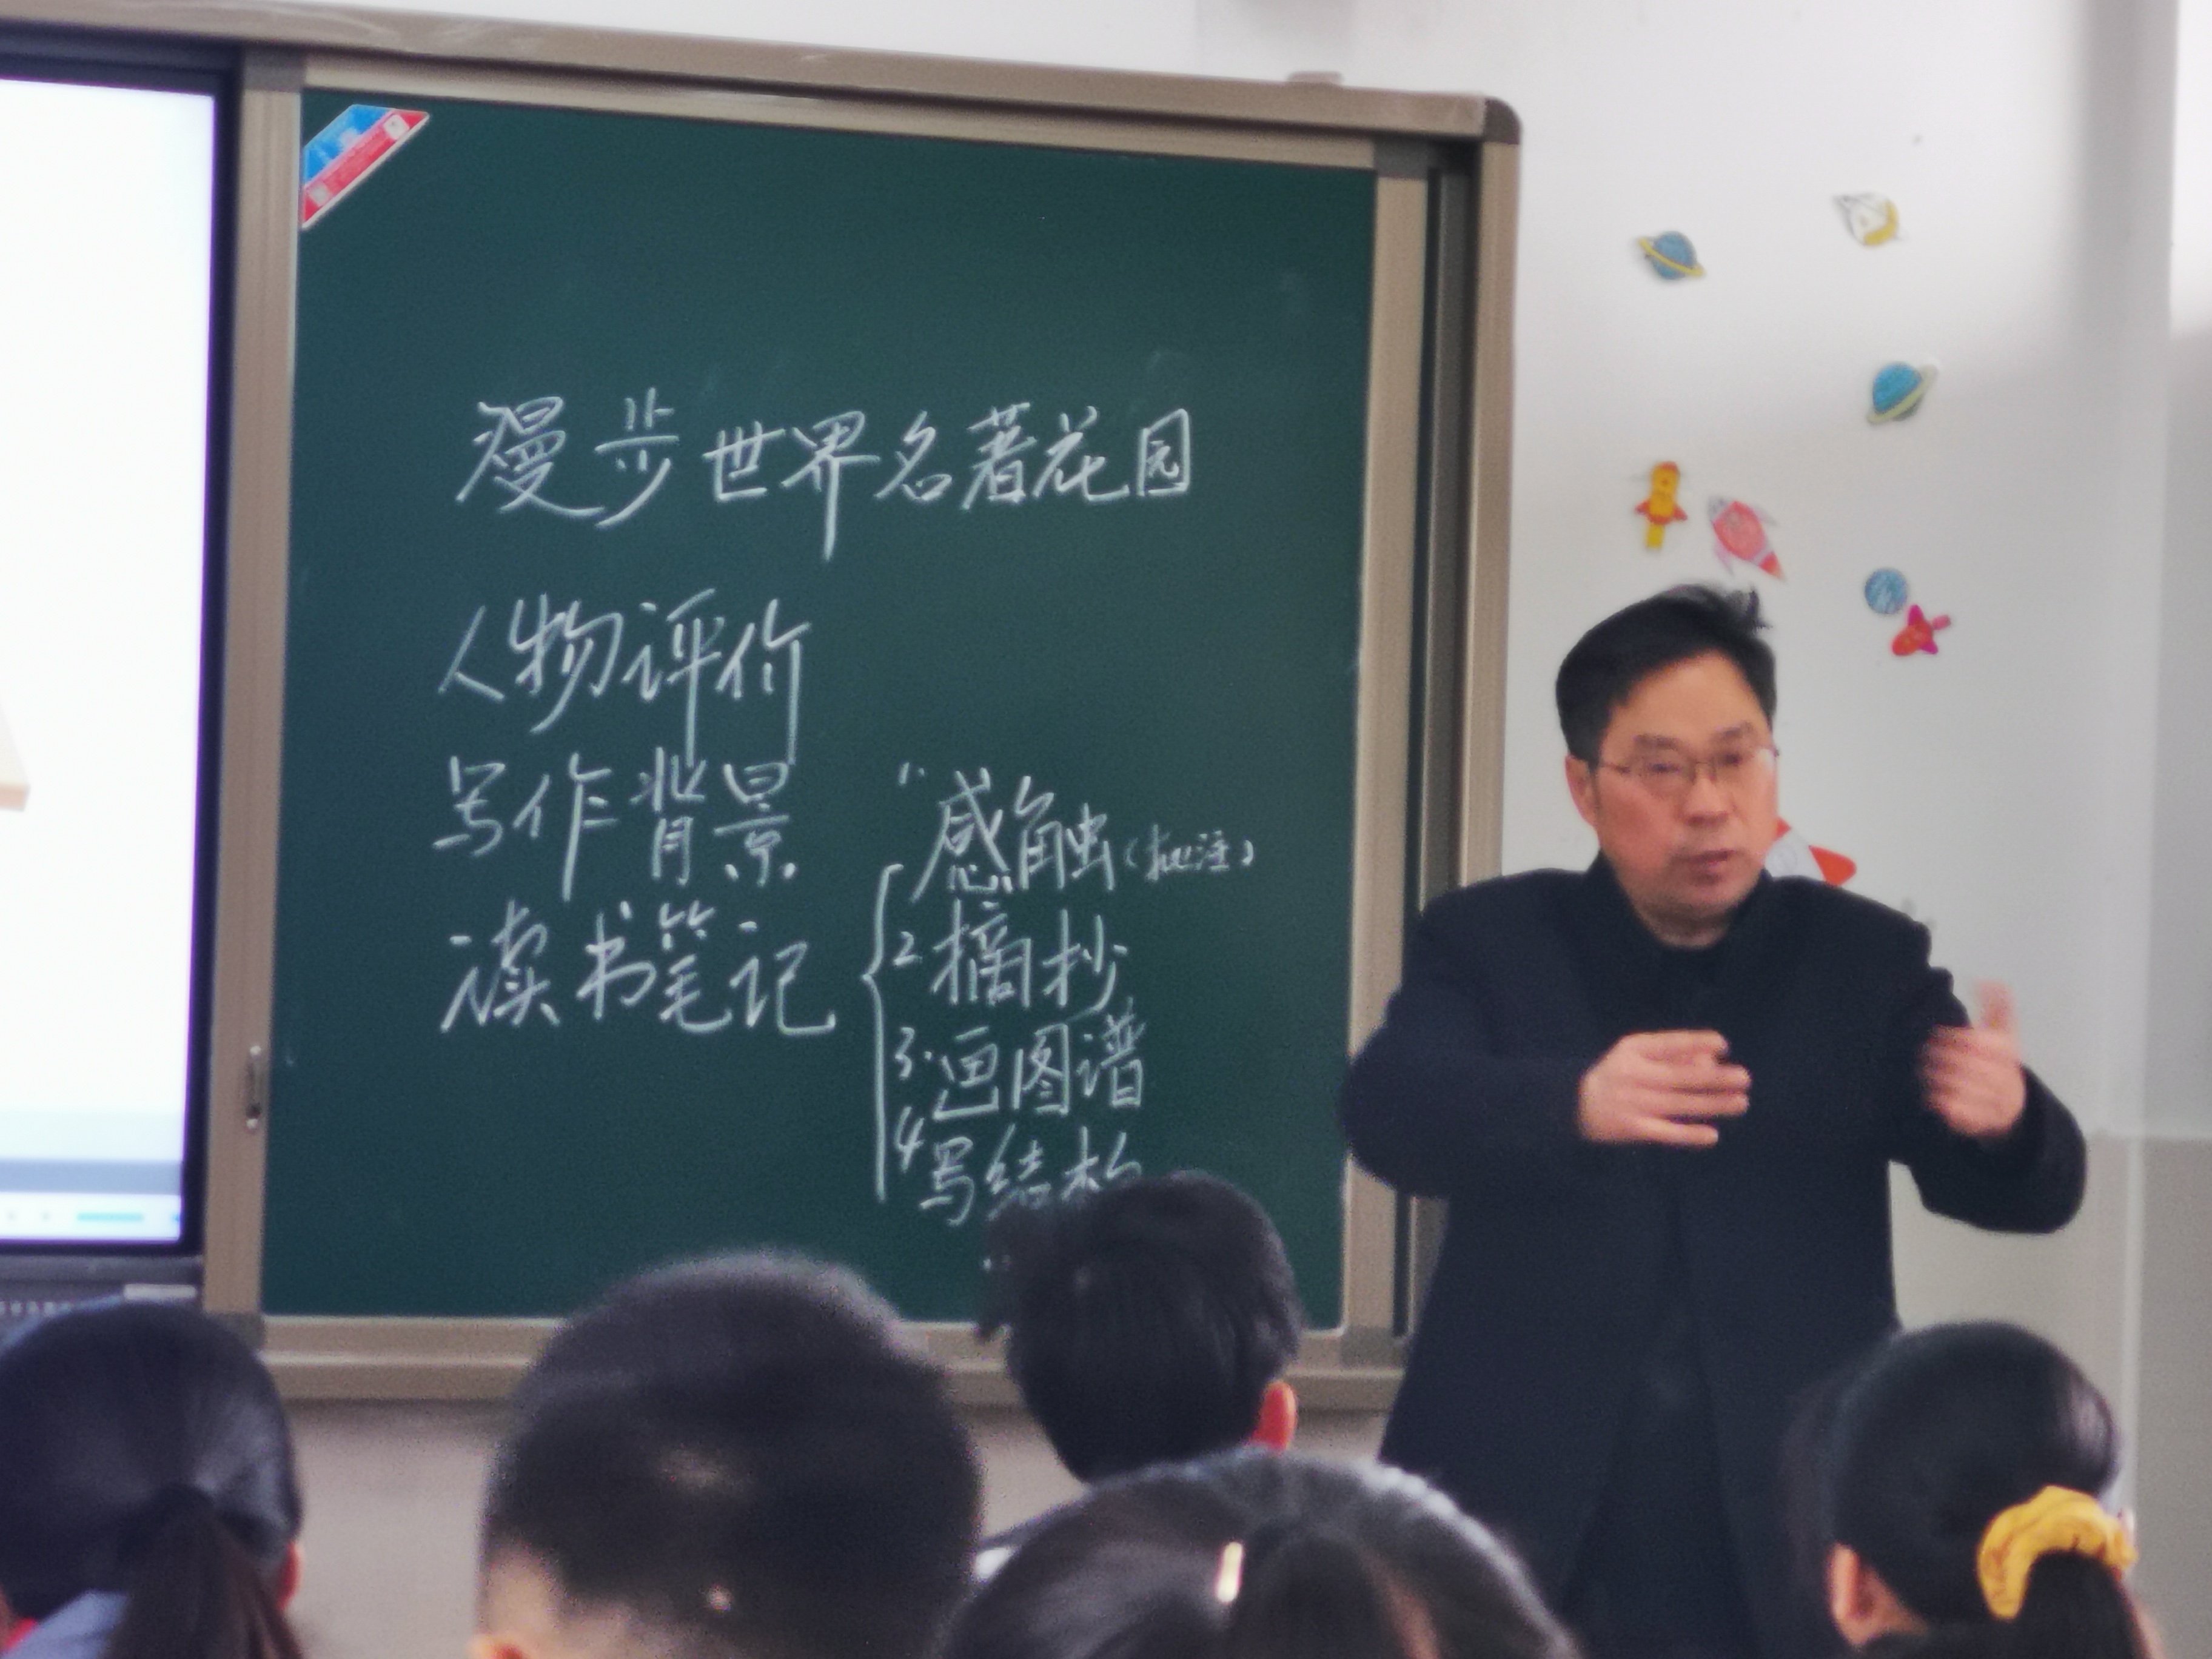 漫步世界名著花园
人物评价
写作背景
读书笔记
1. 感触（批注）
2 摘抄
3. 画图谱
4 写结构